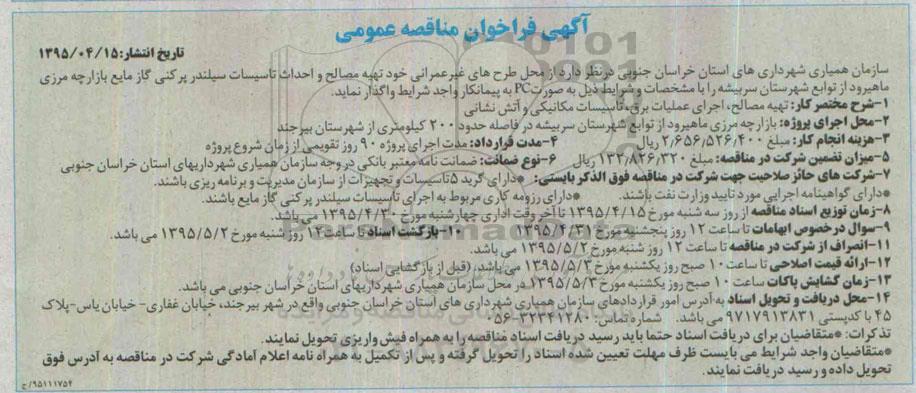 آگهی فراخوان مناقصه عمومی
تاریخ انتشار: ۱۳۹۵/۰۴/۱۵
سازمان همیاری شهرداری های استان خراسان جنوبی درنظر دارد از محل طرح های غیرعمرانی خود تهیه مصالح و احداث تاسیسات سیلندر پرکنی گاز مایع بازارچه مرزی
ماهیرود از توابع شهرستان سربیشه را با مشخصات و شرایط ذیل به صورت PC به پیمانکار واجد شرایط واگذار نماید.
۱-شرح مختصر کار: تهیه مصالح، اجرای عملیات برق، تاسیسات مکانیکی و آتش نشانی
۲-محل اجرای پروژه: بازارچه مرزی ماهیرود از توابع شهرستان سربیشه در فاصله حدود ۲۰۰ کیلومتری از شهرستان بیرجند
۳-هزینه انجام کار: مبلغ ۲,۶۵۶,۵۲۶,۴۰۰ ریال ۴-مدت قرارداد: مدت اجرای پروژه ۹۰ روز تقویمی از زمان شروع پروژه
۵-میزان تضمین شرکت در مناقصه: مبلغ ۱۳۲,۸۲۶,۳۲۰ ریال ۶-نوع ضمانت: ضمانت نامه معتبر بانکی در وجه سازمان همیاری شهرداریهای استان خراسان جنوبی
۷-شرکت های حائز صلاحیت جهت شرکت در مناقصه فوق الذکر بایستی: *دارای گرید ۵ تاسیسات و تجهیزات از سازمان مدیریت و برنامه ریزی باشند.
*دارای گواهینامه اجرایی مورد تایید وزارت نفت باشند. *دارای رزومه کاری مربوط به اجرای تاسیسات سیلندر پرکنی گاز مایع باشند.
۸-زمان توزیع اسناد مناقصه از روز سه شنبه مورخ ۱۳۹۵/۴/۱۵ تا آخر وقت اداری چهارشنبه مورخ ۱۳۹۵/۴/۳۰ می باشد.
۹-سوال درخصوص ابهامات تا ساعت ۱۲ روز پنجشنبه مورخ ۱۳۹۵/۴/۳۱ ۱۰-بازگشت اسناد تا ساعت ۱۴ روز شنبه مورخ ۱۳۹۵/۵/۲ می باشد.
۱۱-انصراف از شرکت در مناقصه تا ساعت ۱۲ روز شنبه مورخ ۱۳۹۵/۵/۲ می باشد.
۱۲-ارائه قیمت اصلاحی تا ساعت ۱۰ صبح روز یکشنبه مورخ ۱۳۹۵/۵/۳ می باشد. (قبل از بازگشایی اسناد)
۱۳-زمان گشایش پاکات ساعت ۱۰ صبح روز یکشنبه مورخ ۱۳۹۵/۵/۳ در محل سازمان همیاری شهرداریهای استان خراسان جنوبی می باشد.
۱۴-محل دریافت و تحویل اسناد به آدرس امور قراردادهای سازمان همیاری شهرداری های استان خراسان جنوبی واقع در شهر بیرجند، خیابان غفاری- خیابان یاس-پلاک
۴۵ با کدپستی ۹۷۱۷۹۱۳۸۳۱ می باشد. شماره تماس: ۳۲۳۴۱۲۸۰-۰۵۶
تذکرات: *متقاضیان برای دریافت اسناد حتما باید رسید دریافت اسناد مناقصه را به همراه فیش واریزی تحویل نمایند.
*متقاضیان واجد شرایط می بایست ظرف مهلت تعیین شده اسناد را تحویل گرفته و پس از تکمیل به همراه نامه اعلام آمادگی شرکت در مناقصه به آدرس فوق
تحویل داده و رسید دریافت نمایند.
۹۵۱۱۱۷۵۴/خ